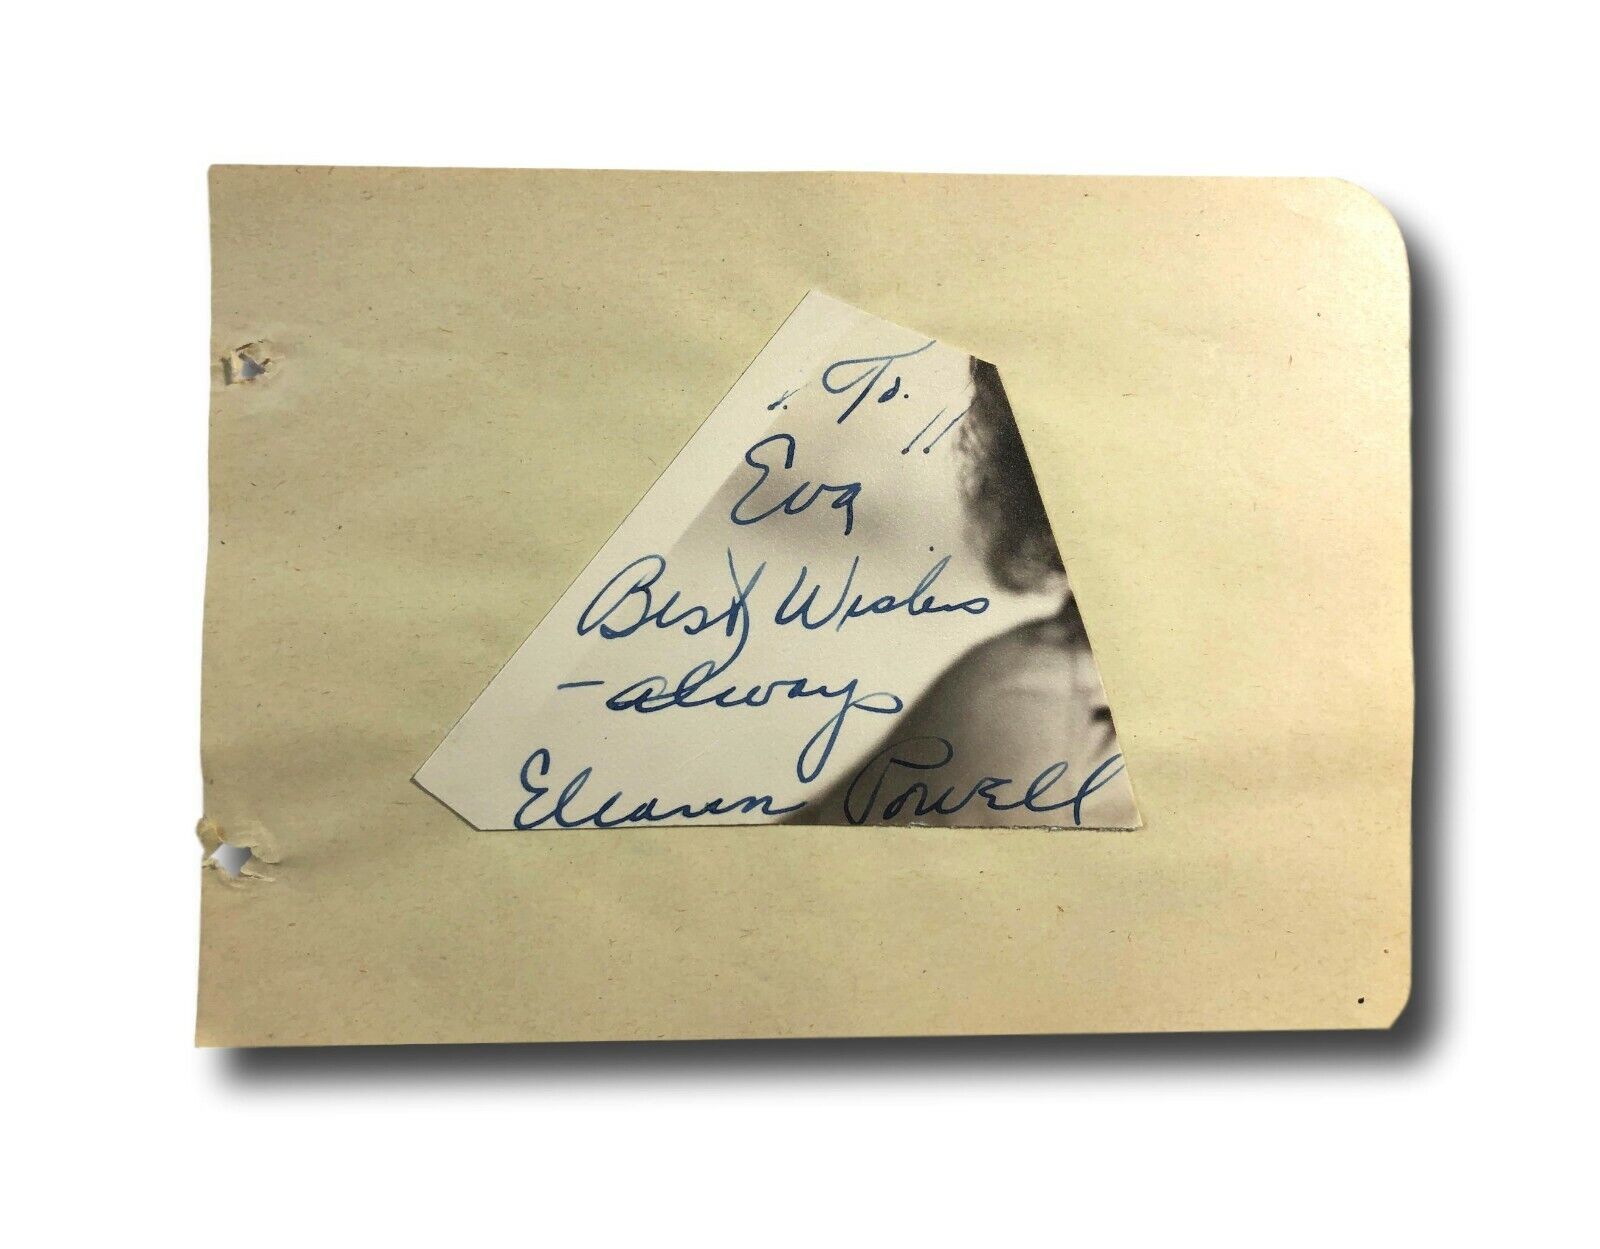 To.
Eva
Best Wishes
- always
Eleanor Powell